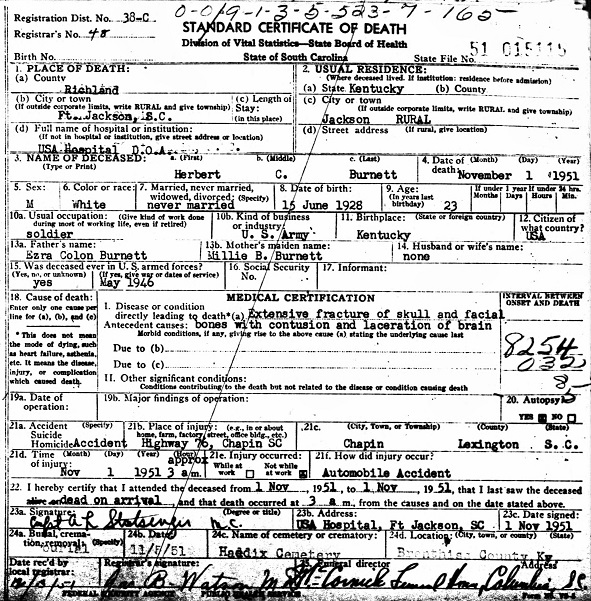 0-019-1-3-5-523-7-165-
Registration Dist. No. 38-C
STANDARD CERTIFICATE OF DEATH
Registrar's No. 48
Division of Vital Statistics—State Board of Health
51 015115
Birth No.
State of South Carolina
State File No.
1. PLACE OF DEATH:
2. USUAL RESIDENCE:
(Where deceased lived. If institution: residence before admission)
(a) County
Richland
(a) State Kentucky (b) County
(b) City or town
(If outside corporate limits, write RURAL and give township)
Ft. Jackson, S.C.
(c) Length of Stay:
(in this place)
(c) City or town
(If outside corporate limits, write RURAL and give township)
Jackson RURAL
(d) Full name of hospital or institution:
(If not in hospital or institution, give street address or location)
USA Hospital D.O.A.
(d) Street address (If rural, give location)
3. NAME OF DECEASED:
(Type or Print)
a. (First) b. (Middle) c. (Last)
Herbert C. Burnett
4. Date of death: (Month) (Day) (Year)
November 1 1951
5. Sex:
M
6. Color or race:
White
7. Married, never married, widowed, divorced: (Specify)
never married
8. Date of birth:
15 June 1928
9. Age:
(In years last birthday)
23
If under 1 year If under 24 hrs.
Months Days Hours Min.
10a. Usual occupation: (Give kind of work done during most of working life, even if retired)
soldier
10b. Kind of business or industry:
U. S. Army
11. Birthplace: (State or foreign country)
Kentucky
12. Citizen of what country?
USA
13a. Father's name:
Ezra Colon Burnett
13b. Mother's maiden name:
Millie B. Burnett
14. Husband or wife's name:
none
15. Was deceased ever in U. S. armed forces?
(Yes, no, or unknown) (If yes, give war or dates of service)
yes May 1946
16. Social Security No.
17. Informant:
18. Cause of death:
Enter only one cause per line for (a), (b), and (c)
* This does not mean the mode of dying, such as heart failure, asthenia, etc. It means the disease, injury, or complication which caused death.
MEDICAL CERTIFICATION
INTERVAL BETWEEN ONSET AND DEATH
I. Disease or condition
directly leading to death*(a) Extensive fracture of skull and facial
Antecedent causes: bones with contusion and laceration of brain
Morbid conditions, if any, giving rise to the above cause (a) stating the underlying cause last
Due to (b)
Due to (c)
8254
032
8,-
II. Other significant conditions:
Conditions contributing to the death but not related to the disease or condition causing death
19a. Date of operation:
19b. Major findings of operation:
20. Autopsy?
YES NO
21a. Accident (Specify)
Suicide
Homicide Accident
21b. Place of injury: (e.g., in or about home, farm, factory, street, office bldg., etc.)
Highway 76, Chapin SC
21c. (City, Town, or Township) (County) (State)
Chapin Lexington S. C.
21d. Time of injury: (Month) (Day) (Year) (Hour)
approx
Nov 1 1951 3 a m.
21e. Injury occurred:
While at work Not while at work
21f. How did injury occur?
Automobile Accident
22. I hereby certify that I attended the deceased from 1 Nov, 1951 to 1 Nov, 1951, that I last saw the deceased
dead on arrival and that death occurred at 3 a m., from the causes and on the date stated above.
23a. Signature (Degree or title)
M.C.
23b. Address:
USA Hospital, Ft Jackson, SC
23c. Date signed:
1 Nov 1951
24a. Burial, cremation, removal: (Specify)
24b. Date:
11/5/51
24c. Name of cemetery or crematory:
Haddix Cemetery
24d. Location: (City, town, or county) (State)
County, Ky
Date rec'd by local registrar:
Registrar's signature:
25. Funeral director Address
McCormick Funeral Home, Columbia, S.C.
FEDERAL SECURITY AGENCY PUBLIC HEALTH SERVICE